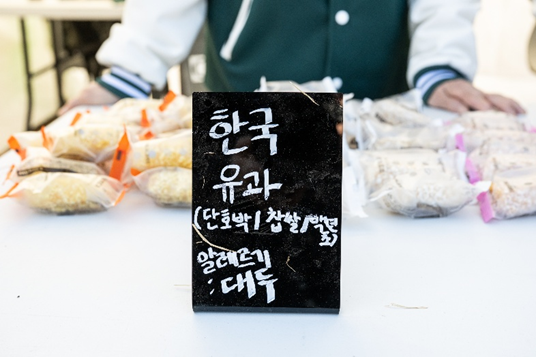 한국
유과
(단호박/찹쌀/백년
초)
알레르기
:대두